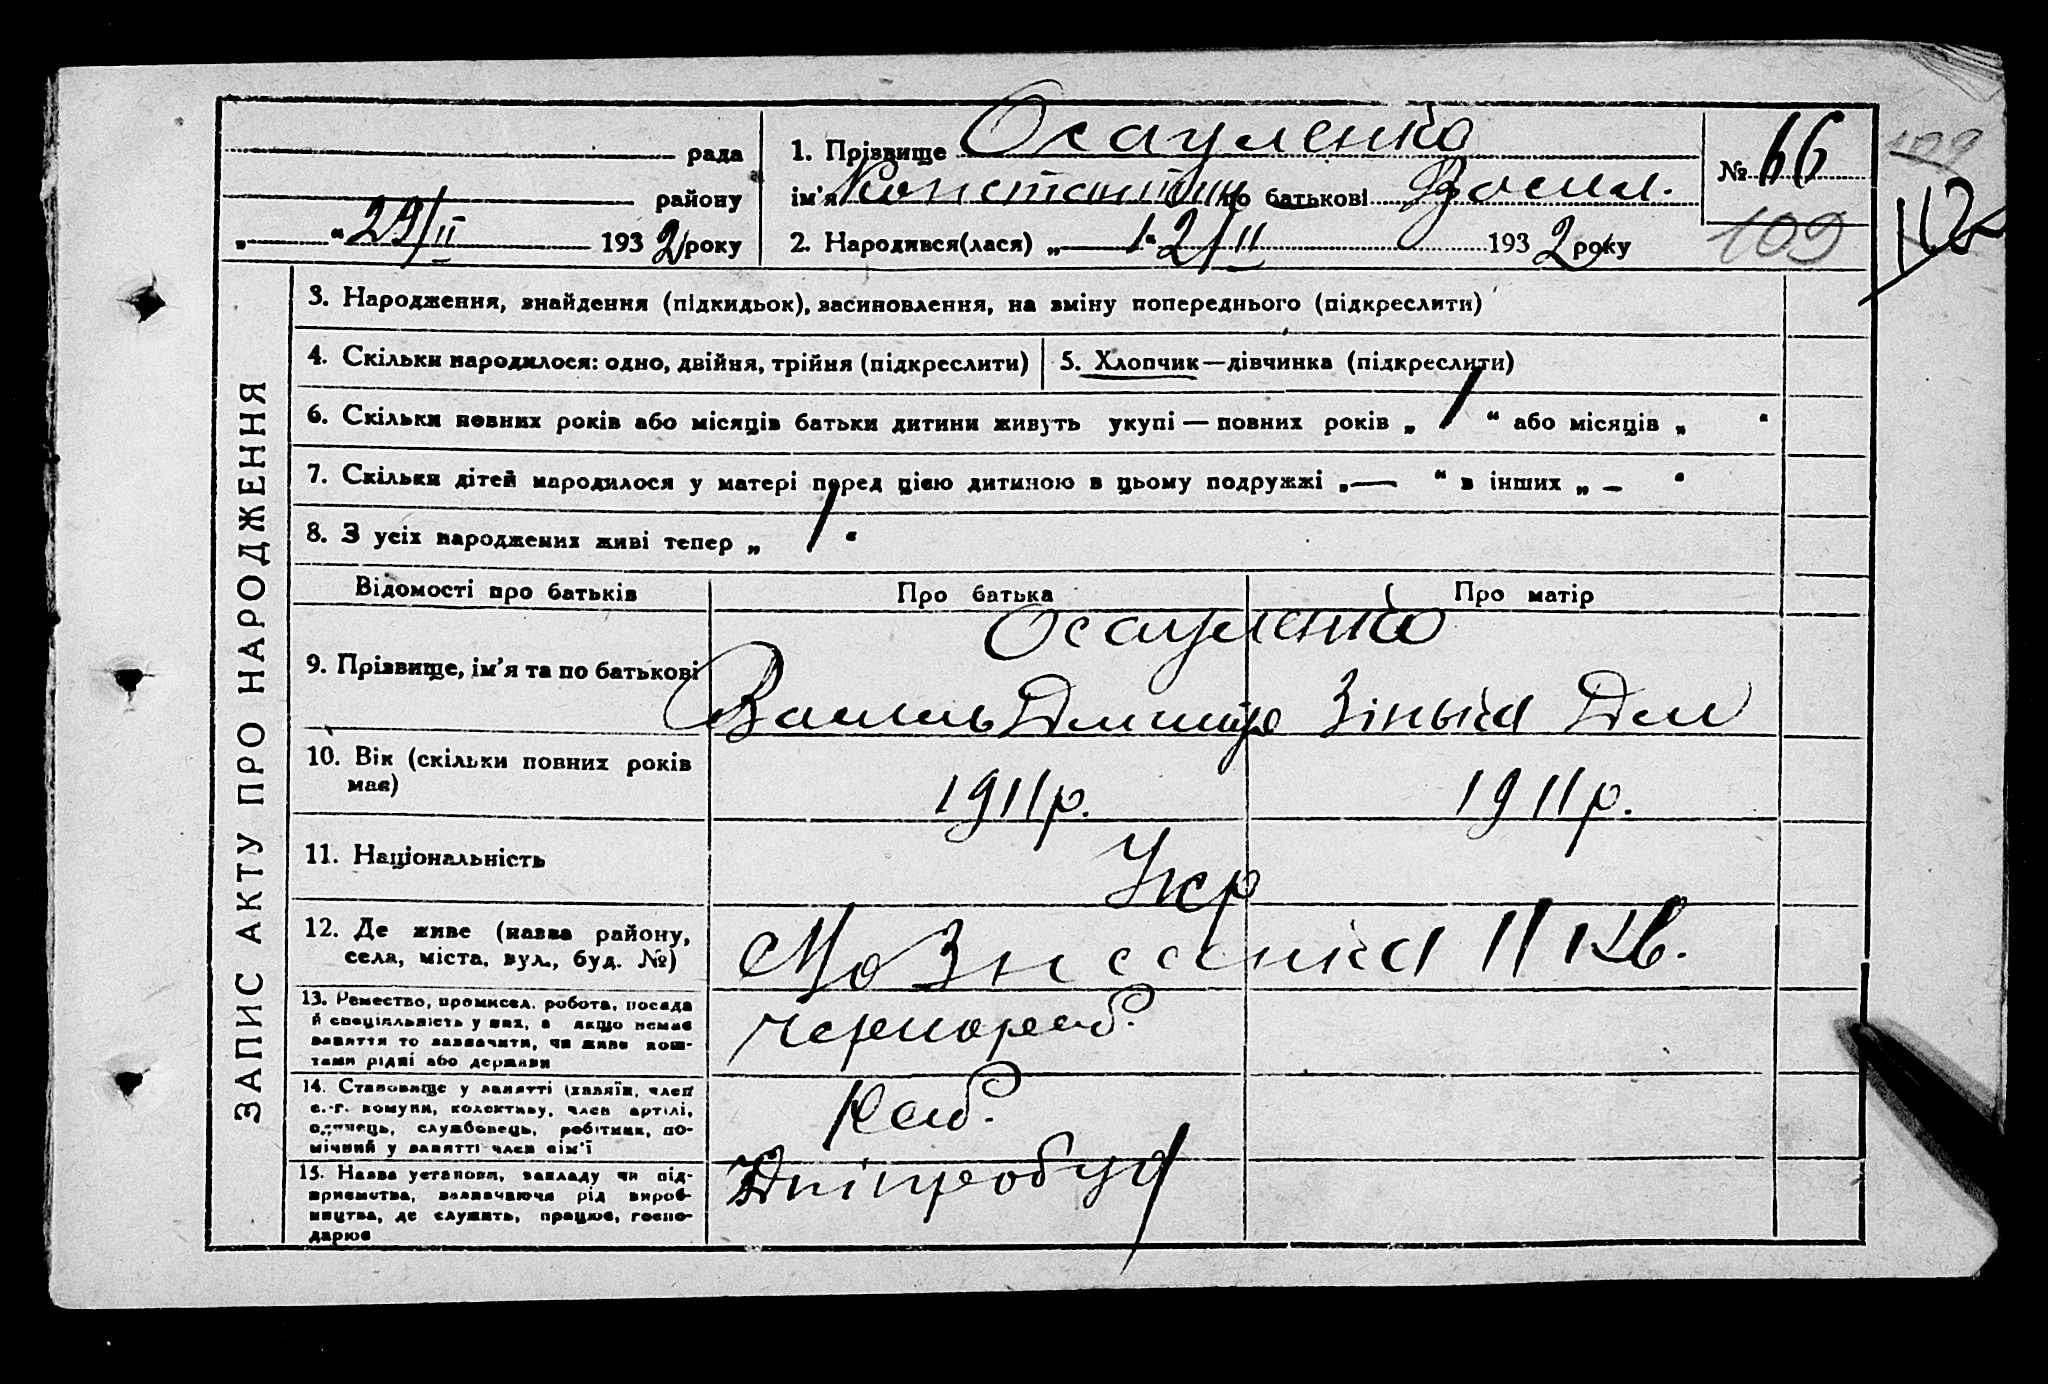 рада
району
„ “ 29/II 1932 року
1. Прізвище Осауленко
ім'я Константин по батькові Васил.
2. Народився(лася) „ “ 12/II 1932 року
№ 66
109
109
ЗАПИС АКТУ ПРО НАРОДЖЕННЯ
3. Народження, знайдення (підкидьок), засиновлення, на зміну попереднього (підкреслити)
4. Скільки народилося: одно, двійня, трійня (підкреслити)
5. Хлопчик—дівчинка (підкреслити)
6. Скільки повних років або місяців батьки дитини живуть укупі — повних років „ 1 “ або місяців „ “
7. Скільки дітей народилося у матері перед цією дитиною в цьому подружжі „ — “ в інших „ — “
8. З усіх народжених живі тепер „ 1 “
Відомості про батьків Про батька Про матір
Осауленко
9. Прізвище, ім'я та по батькові Василь Дмитр Зінька Дем
10. Вік (скільки повних років
має) 1911р. 1911р.
11. Національність Укр
12. Де живе (назва району,
села, міста, вул., буд. №) Мознісанка II кв.
13. Ремество, промисел, робота, посада
й спеціяльність у них, а якщо немає
заняття то зазначити, чи живе кош-
тами рідні або держави
чернораб.
14. Становище у занятті (хазяїн, член
с.-г. комуни, колективу, член артілі,
одинець, службовець, робітник, по-
мічний у занятті член сім'ї
Раб.
15. Назва установи, закладу чи під-
приємства, зазначаючи рід вироб-
ництва, де служить, працює, госпо-
дарює
Дніпробуд